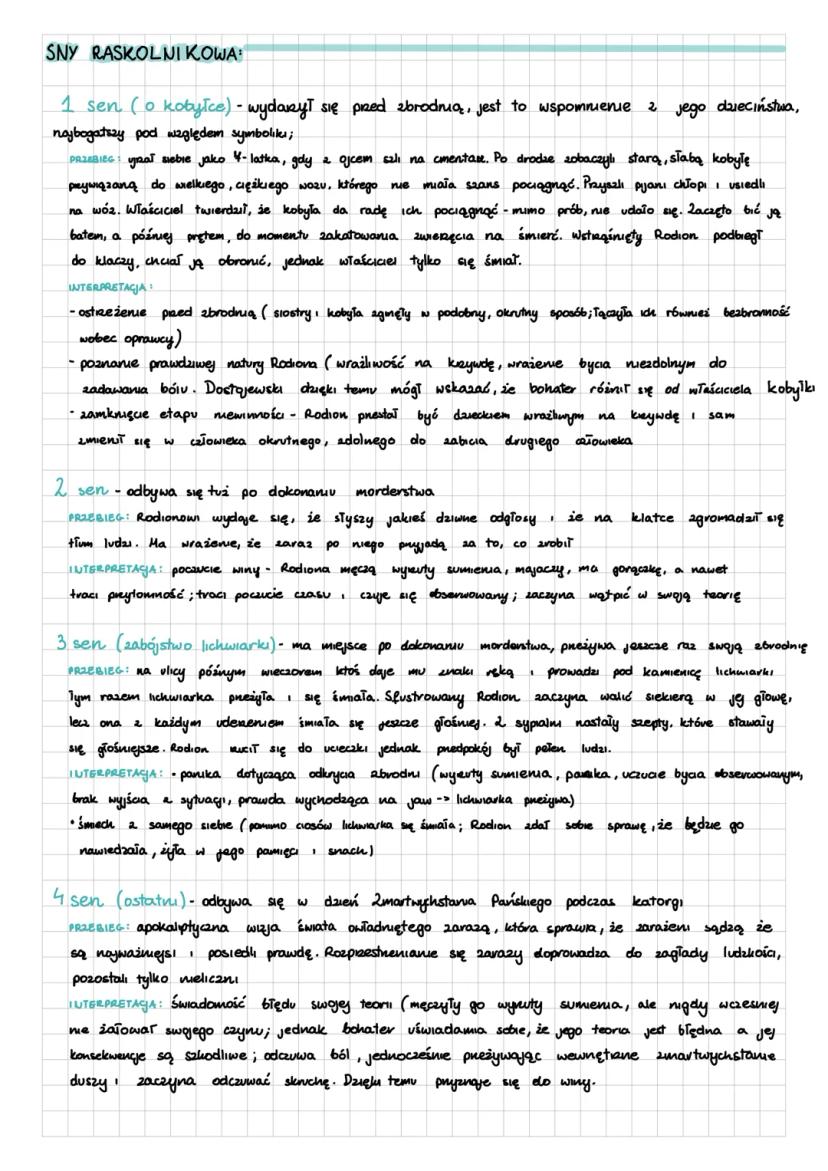 SNY RASKOLNIKOWA:
1 sen (o kobyłce) - wydarzył się przed zbrodnią, jest to wspomnienie z jego dzieciństwa,
najbogatszy pod względem symboliki;
PRZEBIEG: ujrzał siebie jako 4-latka, gdy z ojcem szli na cmentarz. Po drodze zobaczyli starą, słabą kobyłę
przywiązaną do wielkiego, ciężkiego wozu, którego nie miała szans pociągnąć. Przyszli pijani chłopi i usiedli
na wóz. Właściciel twierdził, że kobyła da radę ich pociągnąć - mimo prób, nie udało się. Zaczęto bić ją
batem, a później prętem, do momentu zakatowania zwierzęcia na śmierć. Wstrząśnięty Rodion podbiegł
do klaczy, chciał ją obronić, jednak właściciel tylko się śmiał.
INTERPRETACJA:
- ostrzeżenie przed zbrodnią (siostry i kobyła zginęły w podobny, okrutny sposób; łączyła ich również bezbronność
wobec oprawcy)
- poznanie prawdziwej natury Rodiona (wrażliwość na krzywdę, wrażenie bycia niezdolnym do
zadawania bólu. Dostojewski dzięki temu mógł wskazać, że bohater różnił się od właściciela kobyłki
- zamknięcie etapu niewinności - Rodion przestał być dzieckiem wrażliwym na krzywdę i sam
zmienił się w człowieka okrutnego, zdolnego do zabicia drugiego człowieka
2 sen - odbywa się tuż po dokonaniu morderstwa
PRZEBIEG: Rodionowi wydaje się, że słyszy jakieś dziwne odgłosy i że na klatce zgromadził się
tłum ludzi. Ma wrażenie, że zaraz po niego przyjadą za to, co zrobił
INTERPRETACJA: poczucie winy - Rodiona męczą wyrzuty sumienia, majaczy, ma gorączkę, a nawet
traci przytomność; traci poczucie czasu i czuje się obserwowany; zaczyna wątpić w swoją teorię
3 sen (zabójstwo lichwiarki) - ma miejsce po dokonaniu morderstwa, przeżywa jeszcze raz swoją zbrodnię
PRZEBIEG: na ulicy późnym wieczorem ktoś daje mu znaki ręką i prowadzi pod kamienicę lichwiarki
Tym razem lichwiarka przeżyła i się śmiała. Sfustrowany Rodion zaczyna walić siekierą w jej głowę,
lecz ona z każdym uderzeniem śmiała się jeszcze głośniej. Z sypialni nastały szepty, które stawały
się głośniejsze. Rodion rzucił się do ucieczki jednak przedpokój był pełen ludzi.
INTERPRETACJA: • panika dotycząca odkrycia zbrodni (wyrzuty sumienia, panika, uczucie bycia obserwowanym,
brak wyjścia z sytuacji, prawda wychodząca na jaw -> lichwiarka przeżywa)
• śmiech z samego siebie (pomimo ciosów lichwiarka się śmiała; Rodion zdał sobie sprawę, że będzie go
nawiedzała, żyła w jego pamięci i snach)
4 sen (ostatni) - odbywa się w dzień Zmartwychstania Pańskiego podczas katorgi
PRZEBIEG: apokaliptyczna wizja świata owładniętego zarazą, która sprawia, że zarażeni sądzą że
są najważniejsi i posiedli prawdę. Rozprzestrzenianie się zarazy doprowadza do zagłady ludzkości,
pozostali tylko nieliczni
INTERPRETACJA: świadomość błędu swojej teorii (męczyły go wyrzuty sumienia, ale nigdy wcześniej
nie żałował swojego czynu; jednak bohater uświadamia sobie, że jego teoria jest błędna a jej
konsekwencje są szkodliwe; odczuwa ból, jednocześnie przeżywając wewnętrzne zmartwychstanie
duszy i zaczyna odczuwać skruchę. Dzięki temu przyznaje się do winy.